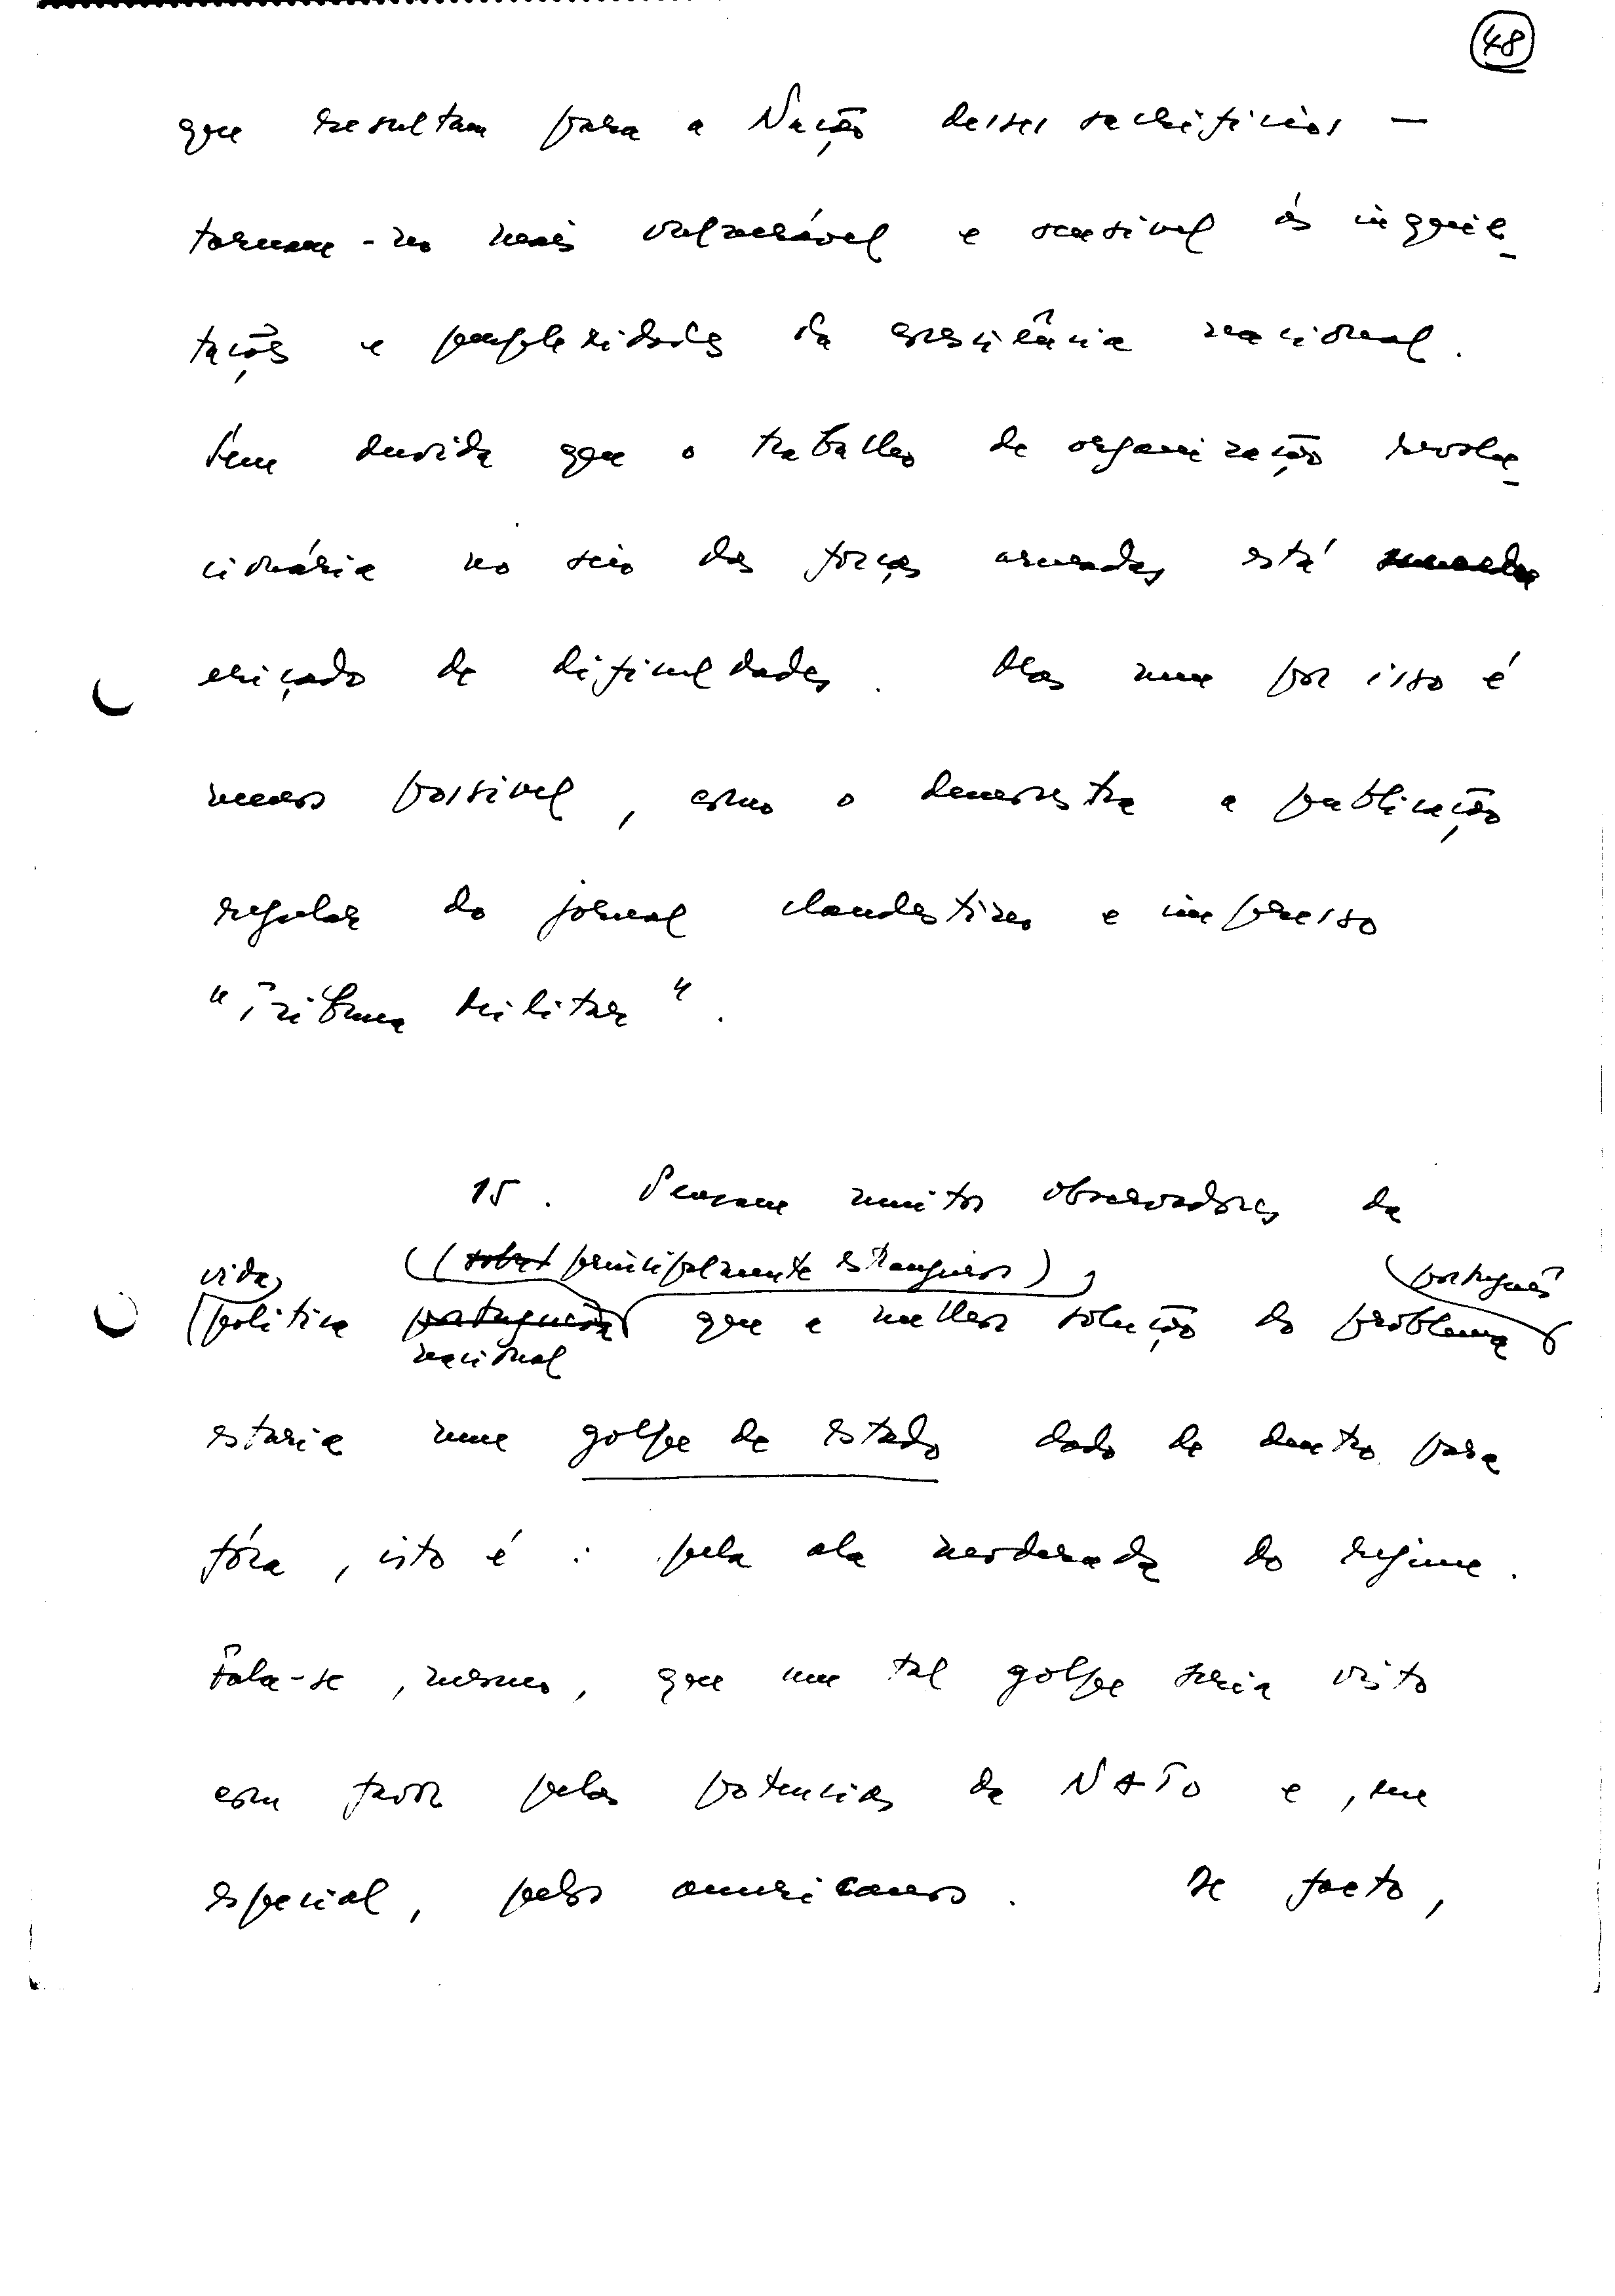 48
que resultam para a Nação desses sacrifícios —
tornam-no mais vulnerável e sensivel ás inquie-
tações e perplexidades da consciência nacional.
Sem duvida que o trabalho de organização revolu-
cionária no seio das forças armadas está
eriçado de dificuldades. Mas nem por isso é
menos possivel, como o demonstra a publicação
regular do jornal clandestino e impresso
"Tribuna Militar".
15. Pensam muitos observadores da
vida (sobret principalmente estrangeiros), português
politica portuguesa que a melhor solução do problema
nacional
estaria num golpe de estado dado de dentro para
fóra, isto é: pela ala moderada do regime.
Fala-se, mesmo, que um tal golpe seria visto
com favor pelas potencias da NATO e, em
especial, pelos americanos. De facto,